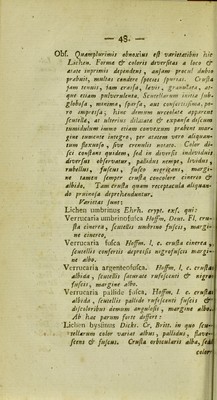 — 48 —
Obs. Quamplurimis obnoxius est varietatibus hic
Lichen. Forma & coloris diversitas a loco &
ætate inprimis dependens, ansam procul dubio
præbuit, multas condere species spurias. Crusta
jam tenuis, tam crassa, lævis, granulata, at-
que etiam pulverulenta. Scutellarum initia sub-
globosa, minima, sparsa, aut confertissima, po-
ro impressa; hinc demum urceolata apparent
scutella, at ulterius dilatata & expansa discum
tumidulum immo etiam convexum præbent mar-
gine tumente integro, per ætatem vero aliquan-
tum flexuoso, sive crenulato notato. Color di-
sci constans quidem, sed in diversis individuis
diversus observatur, pallidus nempe, lividus,
rubellus, fuscus, fusco nigrigans, margi-
ne tamen semper crusta concolore cinereo &
albido. Tam crusta quam receptacula aliquan-
do pruinosa deprehenduntur.
Varietas sunt:
Lichen umbrinus Ehrh. crypt. exs. qui:
Verrucaria umbrinofusca Hoffm. Deut. Fl. cru-
sta cinerea, scutellis umbrino fuscis, margi-
ne cinereo,
Verrucaria fusca Hoffm. l. c. crusta cinerea,
scutellis confertis depressis nigrofuscis margi-
ne albo.
Verrucaria argenteofusca. Hoffm. l. c. crusta
albida, scutellis saturate rufescenti & nigro
fuscis, margine albo.
Verrucaria pallide fusca, Hoffm. l. c. crusta
albida, scutellis pallide rufescenti fuscis &
discoloribus demum angulosis, margine albo.
Ab hac parum forte differt:
Lichen byssinus Dicks. Cr. Britt. in quo scu-
tellarum color variat albus, pallidus, flave-
scens & fuscus. Crusta orbicularis alba, sed
color